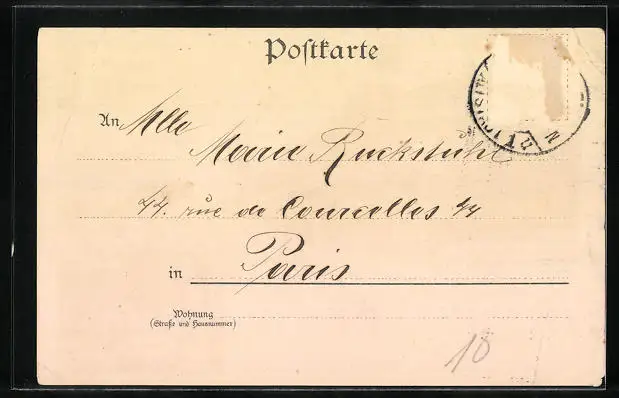 Postkarte
An Mlle
Marie Ruckstuhl
44. rue de Courcelles 44
in Paris
Wohnung
(Straße und Hausnummer)
10